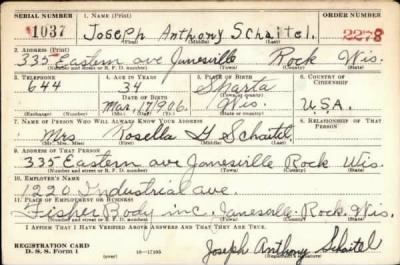 SERIAL NUMBER 1. NAME (Print) ORDER NUMBER
1037 Joseph Anthony Schaitel. 2278
(First) (Middle) (Last)
2. ADDRESS (Print)
335 Eastern ave Janesville Rock Wis.
(Number and street or R. F. D. number) (Town) (County) (State)
3. TELEPHONE 4. AGE IN YEARS 5. PLACE OF BIRTH 6. COUNTRY OF CITIZENSHIP
644 34 Sparta
DATE OF BIRTH (Town or county)
Mar. 17 1906. Wis. U.S.A.
(Exchange) (Number) (Mo.) (Day) (Yr.) (State or country)
7. NAME OF PERSON WHO WILL ALWAYS KNOW YOUR ADDRESS 8. RELATIONSHIP OF THAT PERSON
Mrs Rosella H Schaitel,
(Mr., Mrs., Miss) (First) (Middle) (Last)
9. ADDRESS OF THAT PERSON
335 Eastern ave Janesville Rock Wis.
(Number and street or R. F. D. number) (Town) (County) (State)
10. EMPLOYER'S NAME
1220 Industrial ave.
11. PLACE OF EMPLOYMENT OR BUSINESS
Fisher Body inc, Janesville. Rock. Wis.
(Number and street or R. F. D. number) (Town) (County) (State)
I AFFIRM THAT I HAVE VERIFIED ABOVE ANSWERS AND THAT THEY ARE TRUE.
REGISTRATION CARD
D. S. S. Form 1 (over) 16—17105
Joseph Anthony Schaitel
(Registrant's signature)